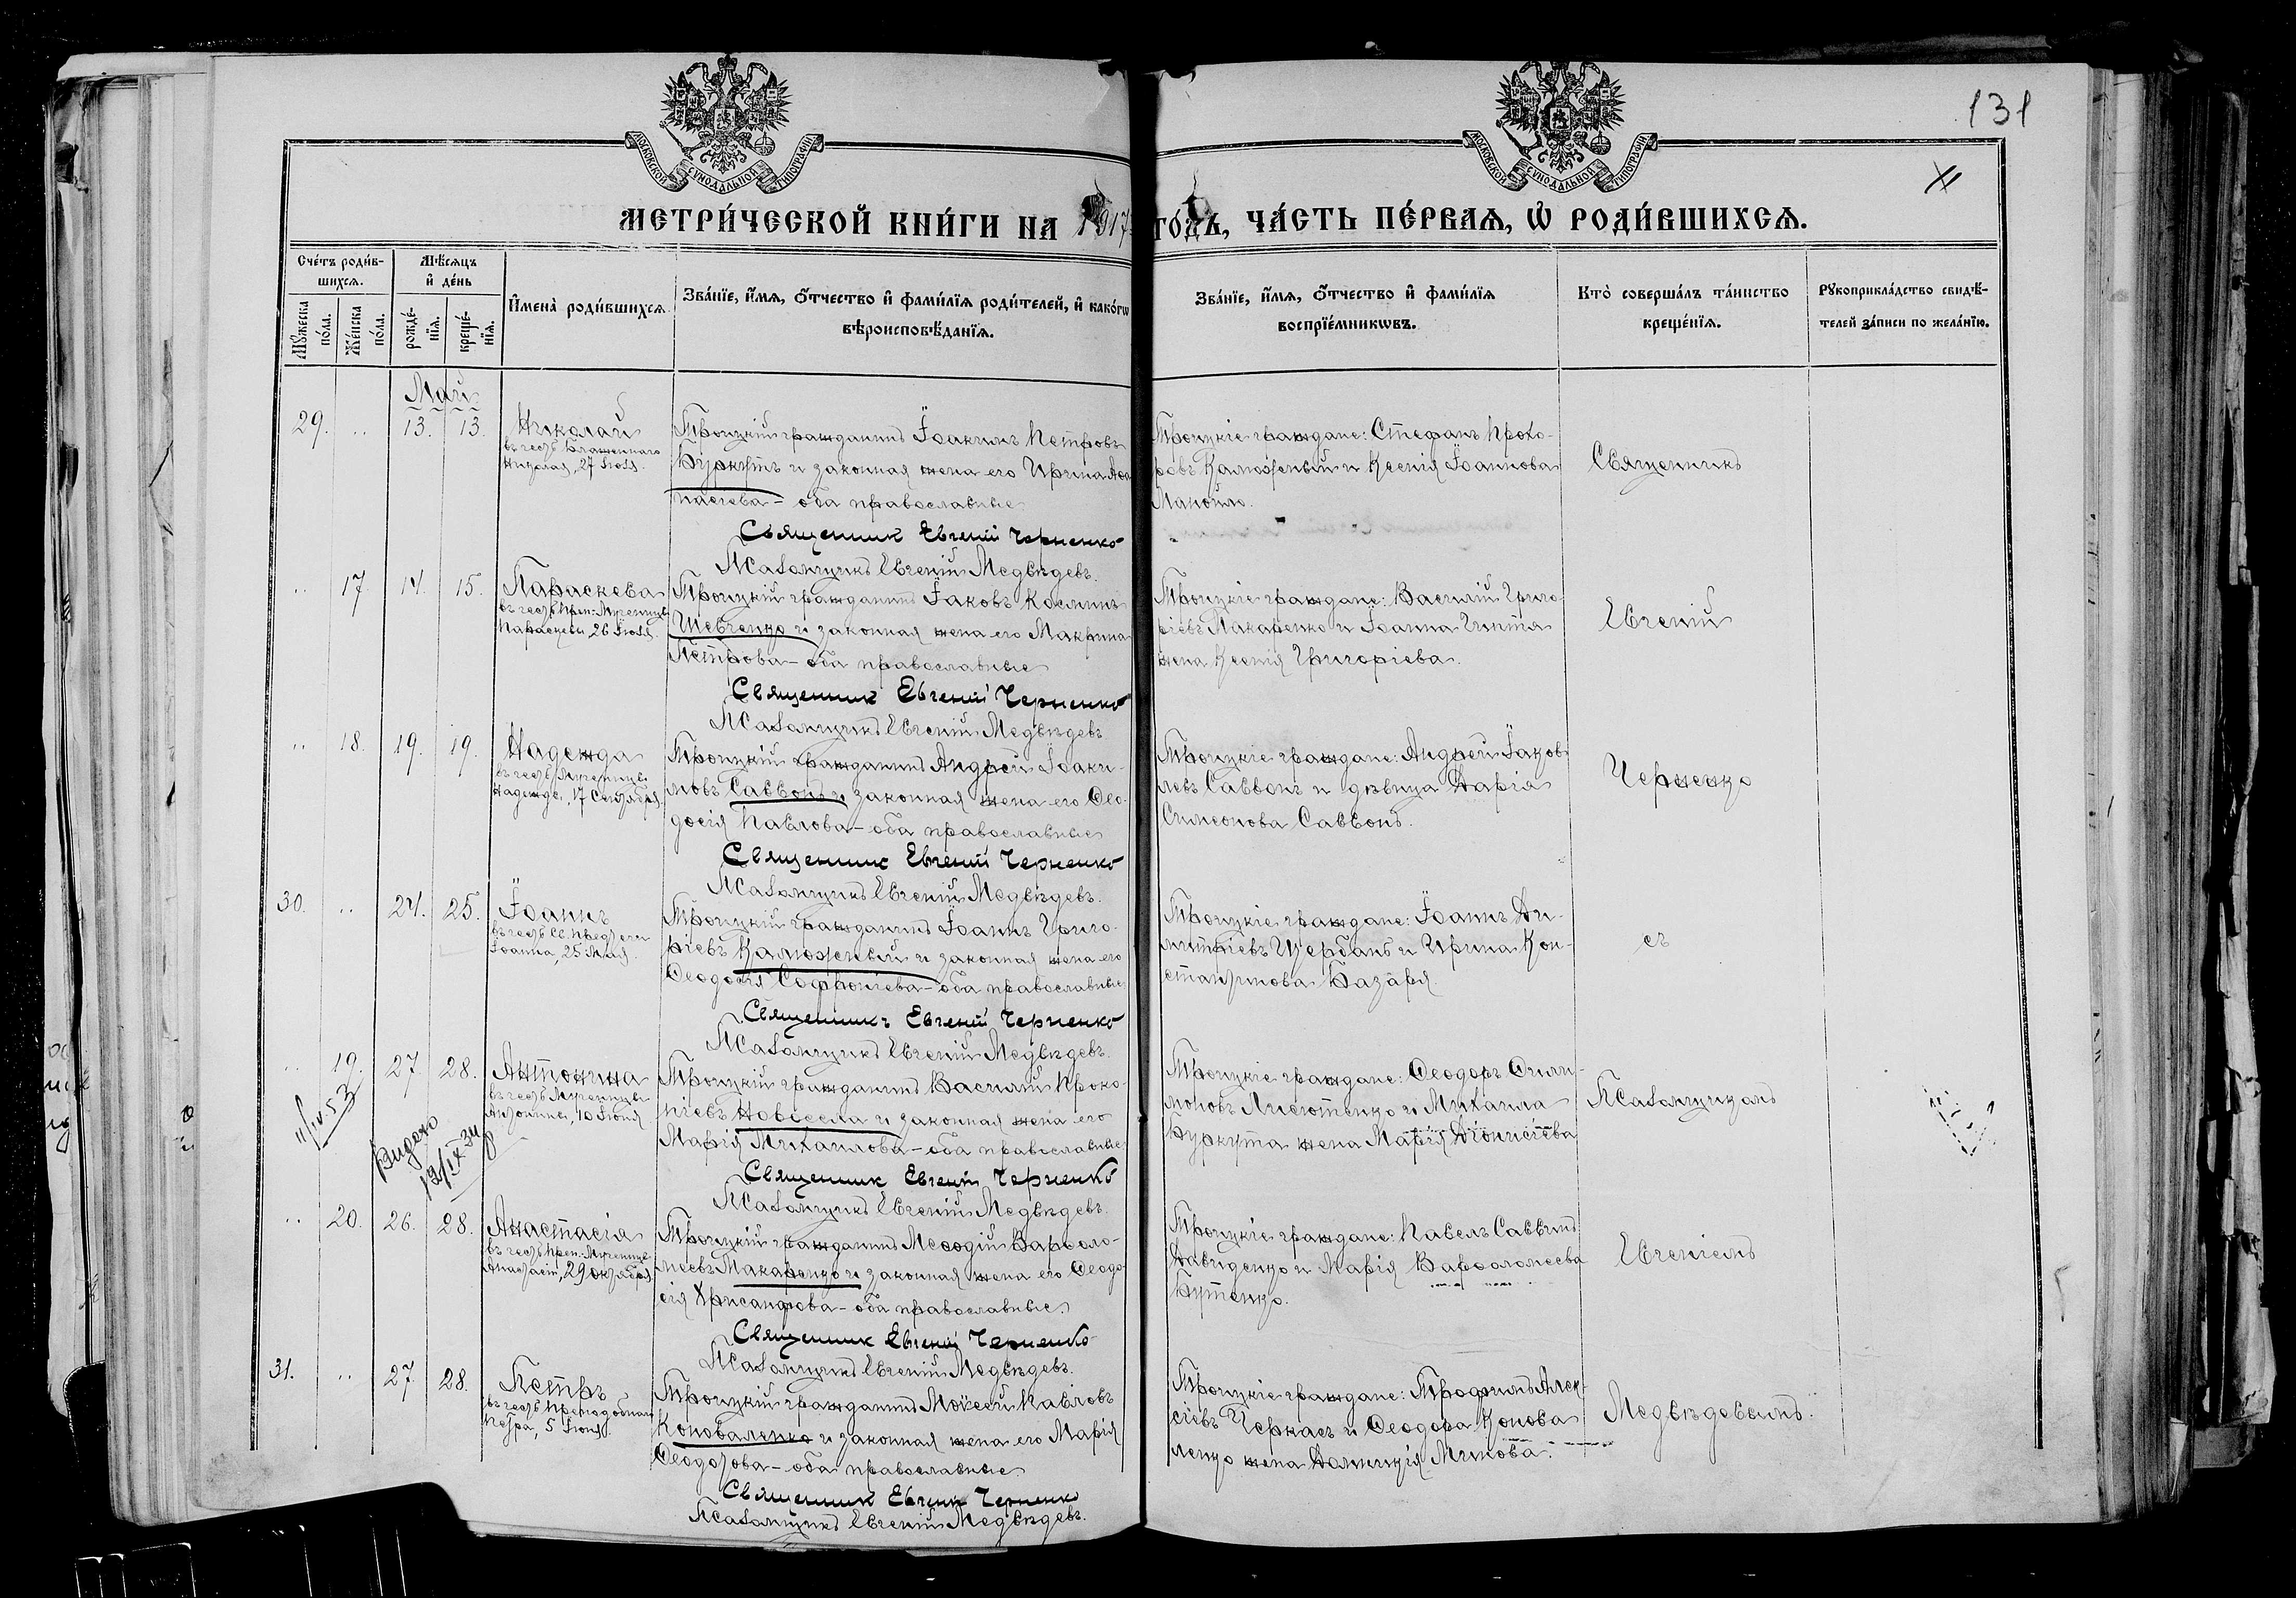 131
МОСКОВСКОЙ СѴНОДАЛЬНОЙ ТИПОГРАФІИ
МОСКОВСКОЙ СѴНОДАЛЬНОЙ ТИПОГРАФІИ
МЕТРИ́ЧЕСКОЙ КНИ́ГИ НА 1917 ГО́ДЪ, ЧА́СТЬ ПЕ́РВАЯ, Ѡ҆ РОДИ́ВШИХСЯ.
Сче́тъ роди́в-
шихся.
Мꙋжеска по́ла.
Же́нска по́ла.
Мѣ́сяцъ
и҆ де́нь
рожде́-
нїя.
креще́-
нїя.
И҆мена̀ роди́вшихся
Зва́нїе, и҆́мя, ѻ҆́тчество и҆ фами́лїя роди́телей, и҆ како́гѡ
вѣроисповѣ́данїя.
Зва́нїе, и҆́мя, ѻ҆́тчество и҆ фами́лїя
воспрїе́мникѡвъ.
Кто̀ соверша́лъ та́инство
креще́нїя.
Рꙋкоприкла́дство свидѣ́-
телей за́писи по жела́нїю.
Май
29. .. 13. 13. Николай
въ честь Блаженнаго
Николая, 27 Іюля.
Троицкій гражданинъ Іоакимъ Петровъ
Буркутъ и законная жена его Ирина Аѳа
насіева - оба православные
Священник Евгеній Черненко
Псаломщикъ Евгеній Медвѣдевъ.
Троицкіе граждане: Стефанъ Прохо-
ровъ Калюжный и Ксенія Іоаннова
Манойло.
Священникъ
.. 17. 14. 15. Параскева
въ честь Преп.-Мученицы
Параскевы, 26 Іюля.
Троицкій гражданинъ Іаковъ Косминъ
Шевченко и законная жена его Макрина
Петрова - оба православные
Священник Евгеній Черненко
Псаломщикъ Евгеній Медвѣдевъ.
Троицкіе граждане: Василій Григо-
ріевъ Макаренко и Іоанна Гинта
жена Ксенія Григоріева.
Евгеній
.. 18. 19. 19. Надежда
въ честь Мученицы
Надежды, 17 Сентября.
Троицкій гражданинъ Андрей Іоаки-
мовъ Саввонъ и законная жена его Ѳео-
досія Павлова - оба православные
Священник Евгеній Черненко
Псаломщикъ Евгеній Медвѣдевъ.
Троицкіе граждане: Андрей Іаков-
левъ Саввонъ и дѣвица Дарія
Симеонова Саввонъ.
Черненко
30. .. 24. 25. Іоаннъ
въ честь Св. Предтечи
Іоанна, 25 Мая.
Троицкій гражданинъ Іоаннъ Григо-
ріевъ Калюжный и законная жена его
Ѳеодосія Софроніева - оба православные
Священникъ Евгеній Черненко
Псаломщикъ Евгеній Медвѣдевъ.
Троицкіе граждане: Іоаннъ Ди-
митріевъ Щербанъ и Ирина Кон-
стантинова Базаря.
съ
.. 19. 27. 28. Антонина
въ честь Мученицы
Антонины, 10 Іюня
11/IV-53
Видано
12/IX-34
Троицкій гражданинъ Василій Проко-
піевъ Новосела и законная жена его
Марія Михаилова - оба православные
Священник Евгеній Черненко
Псаломщикъ Евгеній Медвѣдевъ.
Троицкіе граждане: Ѳеодоръ Фили-
моновъ Лисютенко и Михаила
Буркута жена Марія Діонисіева
Псаломщикомъ
.. 20. 26. 28. Анастасія
въ честь Преп.-Мученицы
Анастасіи, 29 октября.
Троицкій гражданинъ Меѳодій Варѳоло-
меевъ Макаренко и законная жена его Ѳеодо-
сія Хрисанфова - оба православные.
Священник Евгеній Черненко
Псаломщикъ Евгеній Медвѣдевъ.
Троицкіе граждане: Павелъ Саввинъ
Давиденко и Марія Варѳоломеева
Бутенко.
Евгеніемъ
31. .. 27. 28. Петръ
въ честь Преподобнаго
Петра, 5 Іюня.
Троицкій гражданинъ Моисей Павловъ
Коноваленко и законная жена его Марія
Ѳеодотова - оба православные
Священник Евгеній Черненко
Псаломщикъ Евгеній Медвѣдевъ.
Троицкіе граждане: Трофимъ Алек-
сіевъ Черкасъ и Ѳеодора Конова
ленко жена Домникія Минова.
Медвѣдевымъ.